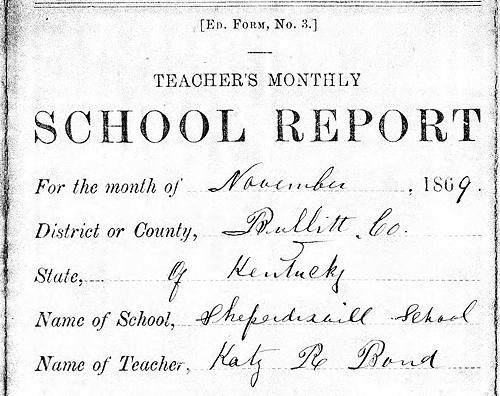 [ED. FORM, NO. 3.]
TEACHER'S MONTHLY
SCHOOL REPORT
For the month of November, 1869.
District or County, Bullitt Co.
State, Of Kentucky
Name of School, Sheperdsvill School
Name of Teacher, Katy R Bond